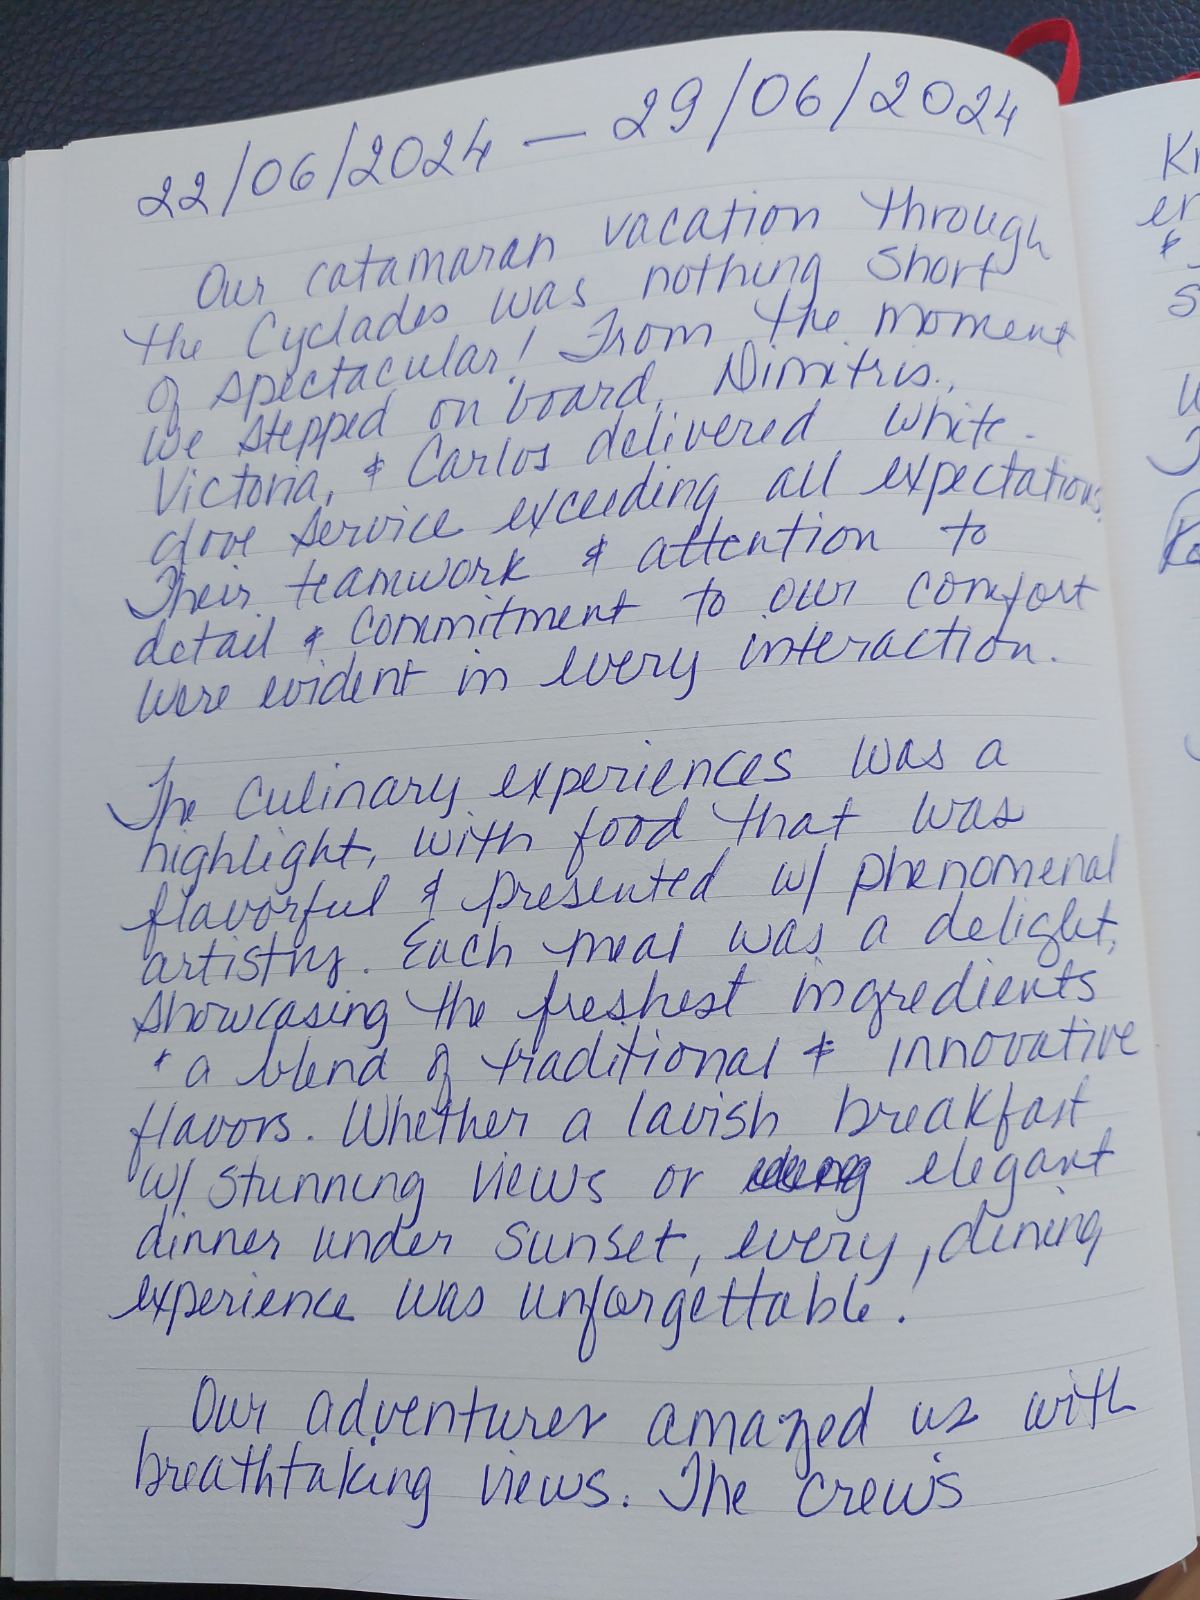 22/06/2024 — 29/06/2024
Our catamaran vacation through
the Cyclades was nothing short
of spectacular! From the moment
we stepped on board, Dimitris,
Victoria, & Carlos delivered white-
glove service exceeding all expectations.
Their teamwork & attention to
detail & commitment to our comfort
were evident in every interaction.
The culinary experiences was a
highlight, with food that was
flavorful & presented w/ phenomenal
artistry. Each meal was a delight,
showcasing the freshest ingredients
& a blend of traditional & innovative
flavors. Whether a lavish breakfast
w/ stunning views or elegant
dinner under sunset, every, dining
experience was unforgettable.
Our adventures amazed us with
breathtaking views. The crew's